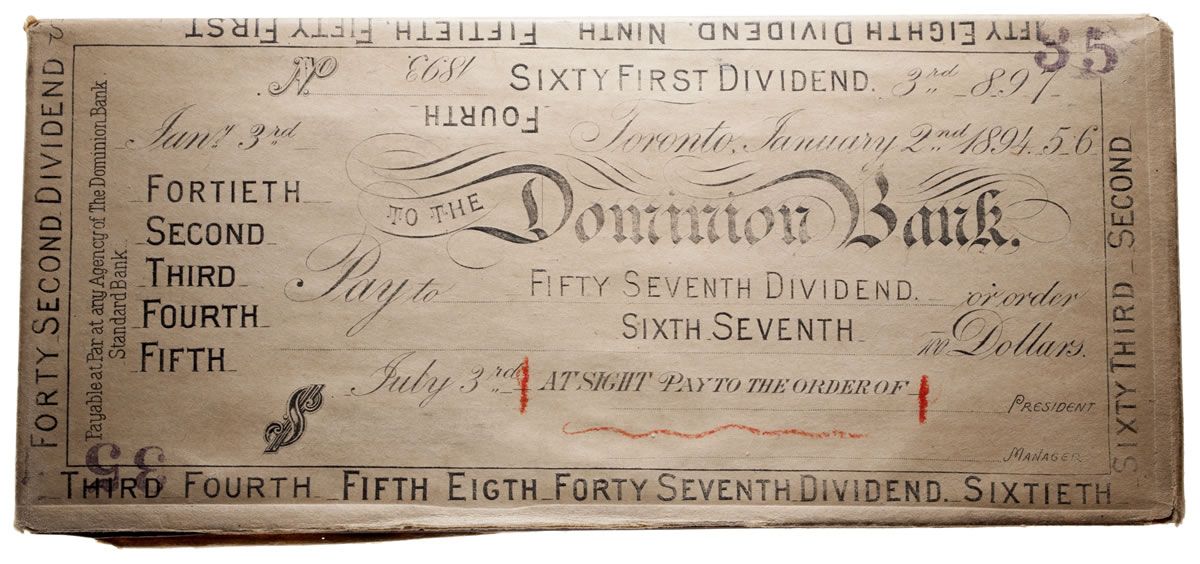 FIFTY FIRST
FIFTIETH.
NINTH
FIFTY EIGHTH DIVIDEND.
35
No 1893
SIXTY FIRST DIVIDEND. 3rd 897
FOURTH
Jany 3rd
Toronto, January 2nd 1894. 5 6
FORTY SECOND DIVIDEND
Payable at Par at any Agency of The Dominion Bank
Standard Bank
FORTIETH
SECOND
THIRD
FOURTH
FIFTH
TO THE Dominion Bank.
Pay to FIFTY SEVENTH DIVIDEND. or order
SIXTH SEVENTH
100 Dollars.
July 3rd AT SIGHT PAY TO THE ORDER OF
$
PRESIDENT
MANAGER
SIXTY THIRD SECOND
35
THIRD FOURTH FIFTH EIGTH FORTY SEVENTH DIVIDEND. SIXTIETH